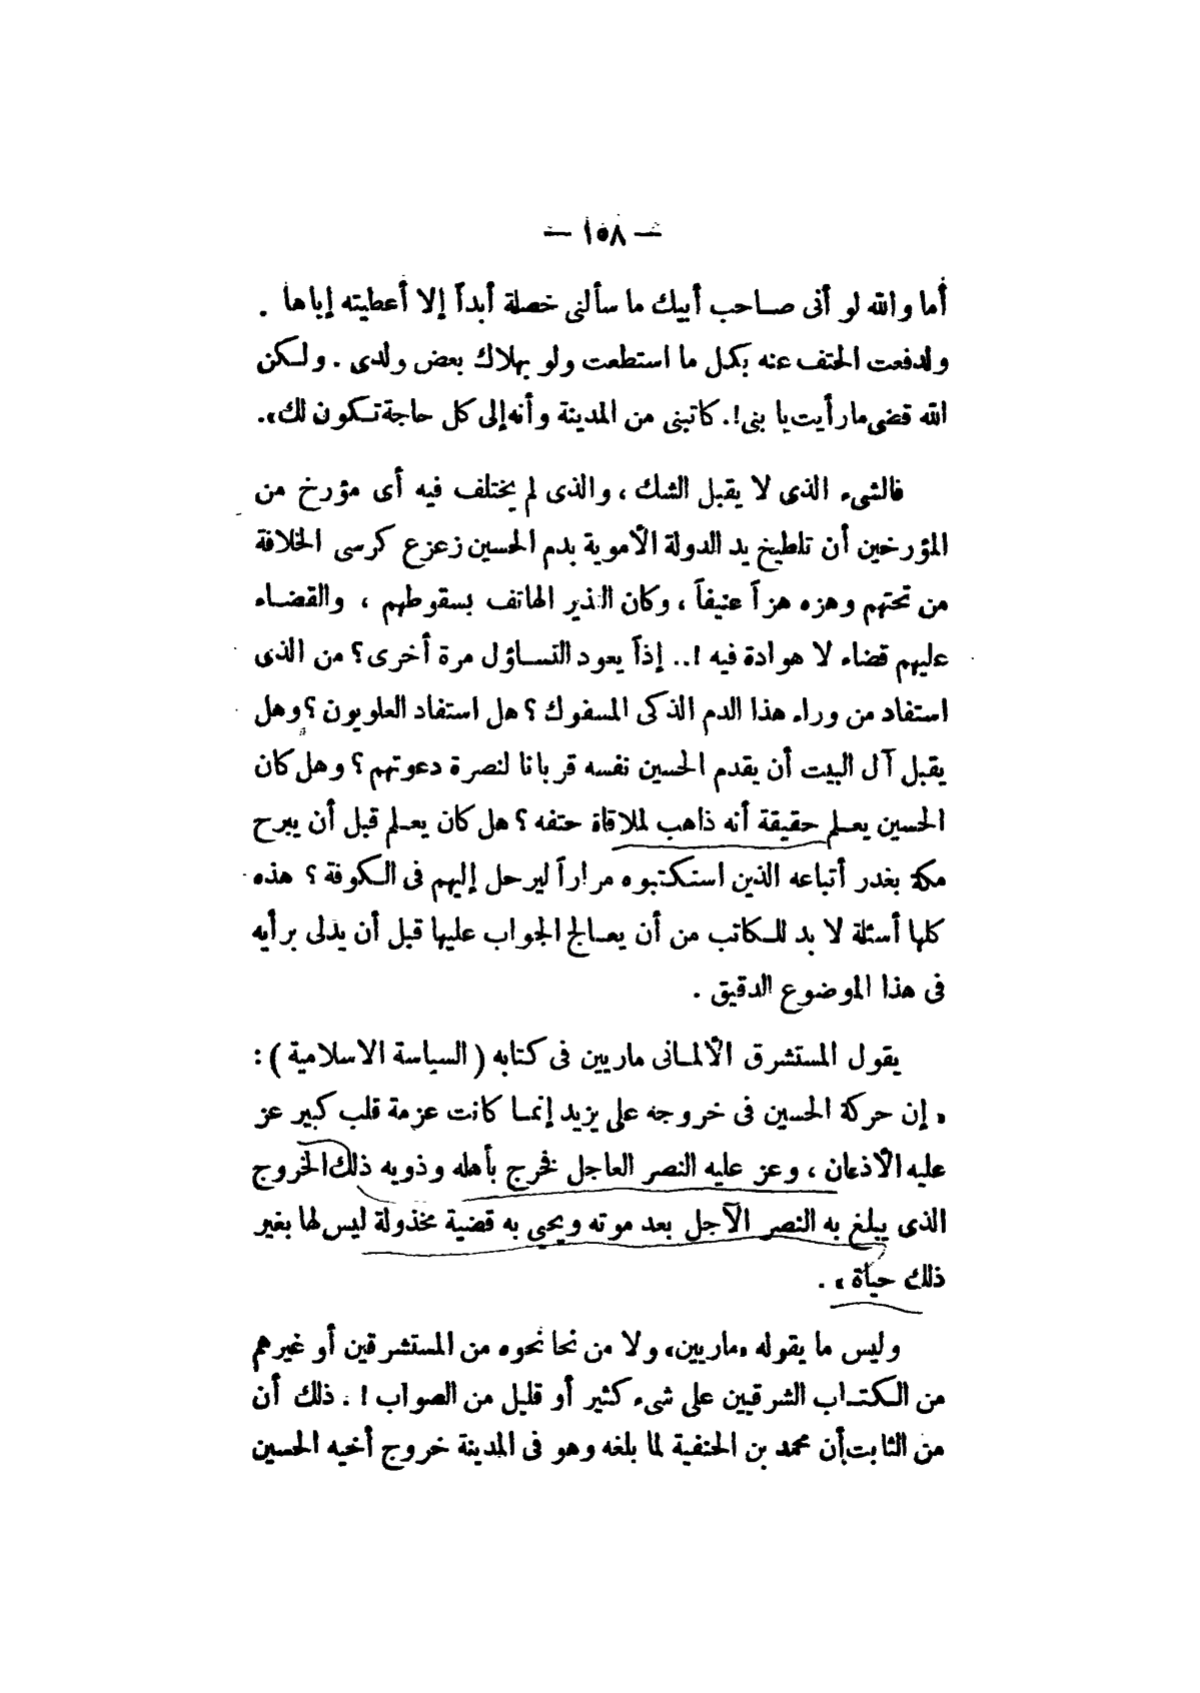 — ١٥٨ —
أما والله لو أنى صاحب أبيك ما سألنى خصلة أبداً إلا أعطيته إياها .
ولدفعت الحتف عنه بكل ما استطعت ولو بهلاك بعض ولدى . ولكن
الله قضى ما رأيت يا بنى !. كاتبنى من المدينة وأنه إلى كل حاجة تكون لك» .
فالشىء الذى لا يقبل الشك ، والذى لم يختلف فيه أى مؤرخ من
المؤرخين أن تلطيخ يد الدولة الأموية بدم الحسين زعزع كرسى الخلافة
من تحتهم وهزه هزاً عنيفاً ، وكان النذير الهاتف بسقوطهم ، والقضاء
عليهم قضاء لا هوادة فيه !.. إذاً يعود التساؤل مرة أخرى ؟ من الذى
استفاد من وراء هذا الدم الذكى المسفوك ؟ هل استفاد العلويون ؟ وهل
يقبل آل البيت أن يقدم الحسين نفسه قربانا لنصرة دعوتهم ؟ وهل كان
الحسين يعلم حقيقة أنه ذاهب لملاقاة حتفه ؟ هل كان يعلم قبل أن يبرح
مكة بغدر أتباعه الذين استكتبوه مراراً ليرحل إليهم فى الكوفة ؟ هذه
كلها أسئلة لا بد للكاتب من أن يعالج الجواب عليها قبل أن يدلى برأيه
فى هذا الموضوع الدقيق .
يقول المستشرق الألمانى ماريين فى كتابه ( السياسة الاسلامية ) :
« إن حركة الحسين فى خروجه على يزيد إنما كانت عزمة قلب كبير عز
عليه الأذعان ، وعز عليه النصر العاجل فخرج بأهله وذويه ذلك الخروج
الذى يبلغ به النصر الآجل بعد موته ويحيى به قضية مخذولة ليس لها بغير
ذلك حياة » .
وليس ما يقوله «ماريين» ولا من نحا نحوه من المستشرقين أو غيرهم
من الكتاب الشرقيين على شىء كثير أو قليل من الصواب ! . ذلك أن
من الثابت أن محمد بن الحنفية لما بلغه وهو فى المدينة خروج أخيه الحسين